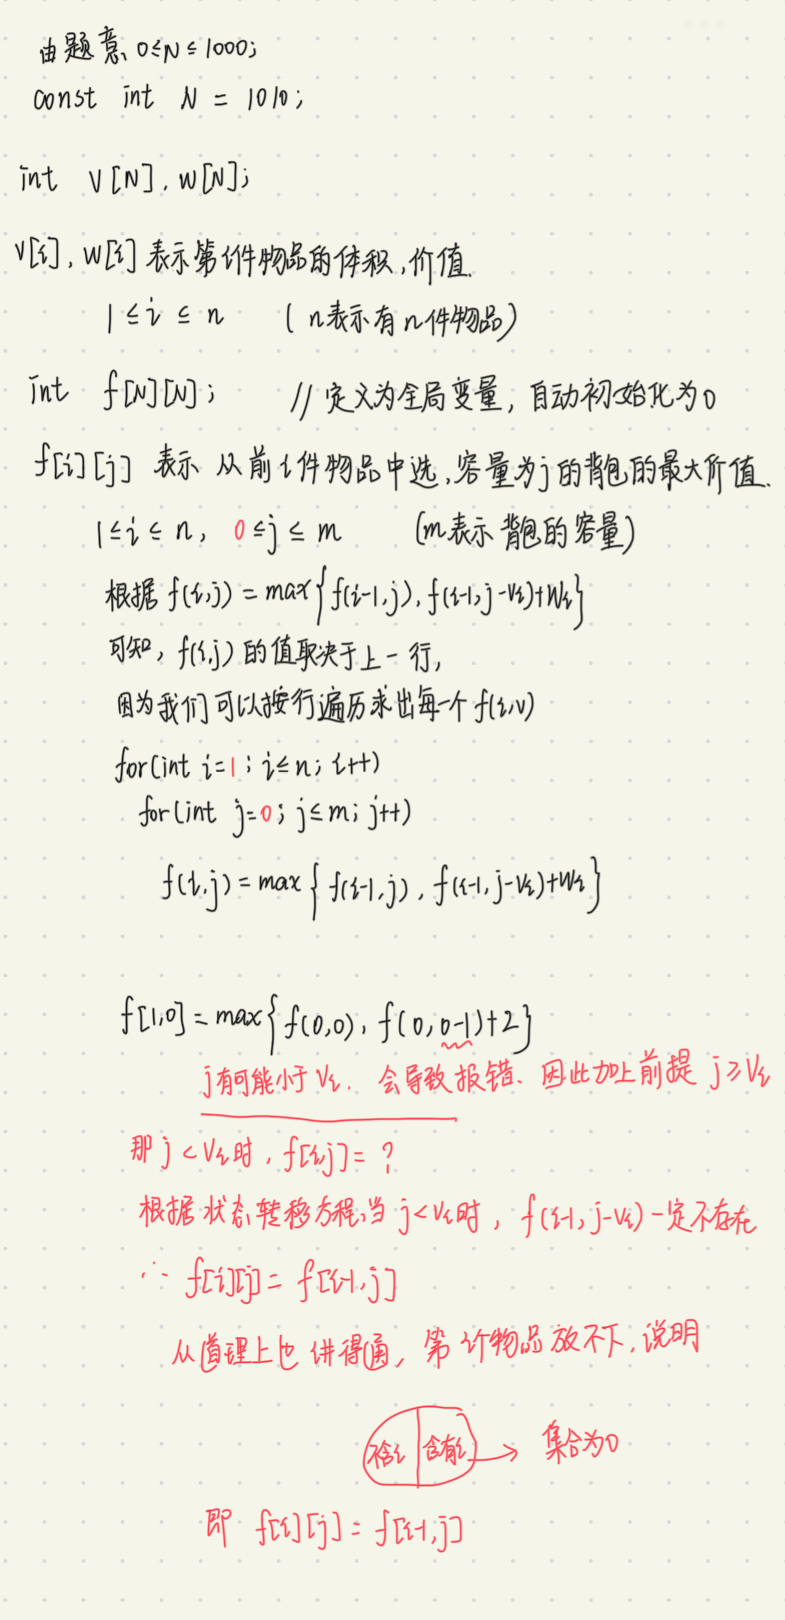 由题意, 0≤N≤1000;
const int N = 1010;
int V[N], W[N];
V[i], W[i] 表示第i件物品的体积,价值.
1 ≤ i ≤ n ( n表示有n件物品)
int f[N][N]; // 定义为全局变量, 自动初始化为0
f[i][j] 表示 从前i件物品中选,容量为j的背包的最大价值.
1≤i≤n, 0≤j≤m (m表示背包的容量)
根据 f(i,j) = max{f(i-1,j), f(i-1,j-Vi)+Wi}
可知, f(i,j)的值取决于上一行,
因为我们可以按行遍历求出每一个f(i,v)
for(int i=1; i≤n; i++)
for(int j=0; j≤m; j++)
f(i,j)=max{ f(i-1,j), f(i-1,j-Vi)+Wi}
f[1,0] = max{ f(0,0), f(0,0-1)+2}
j有可能小于Vi. 会导致报错. 因此加上前提 j≥Vi
那 j<Vi时, f[i,j]= ?
根据状态转移方程,当 j<Vi时, f(i-1,j-Vi)一定不存在
∴ f[i][j] = f[i-1,j]
从道理上也讲得通, 第i个物品放不下,说明
不含i 含有i → 集合为0
即 f[i][j] = f[i-1,j]